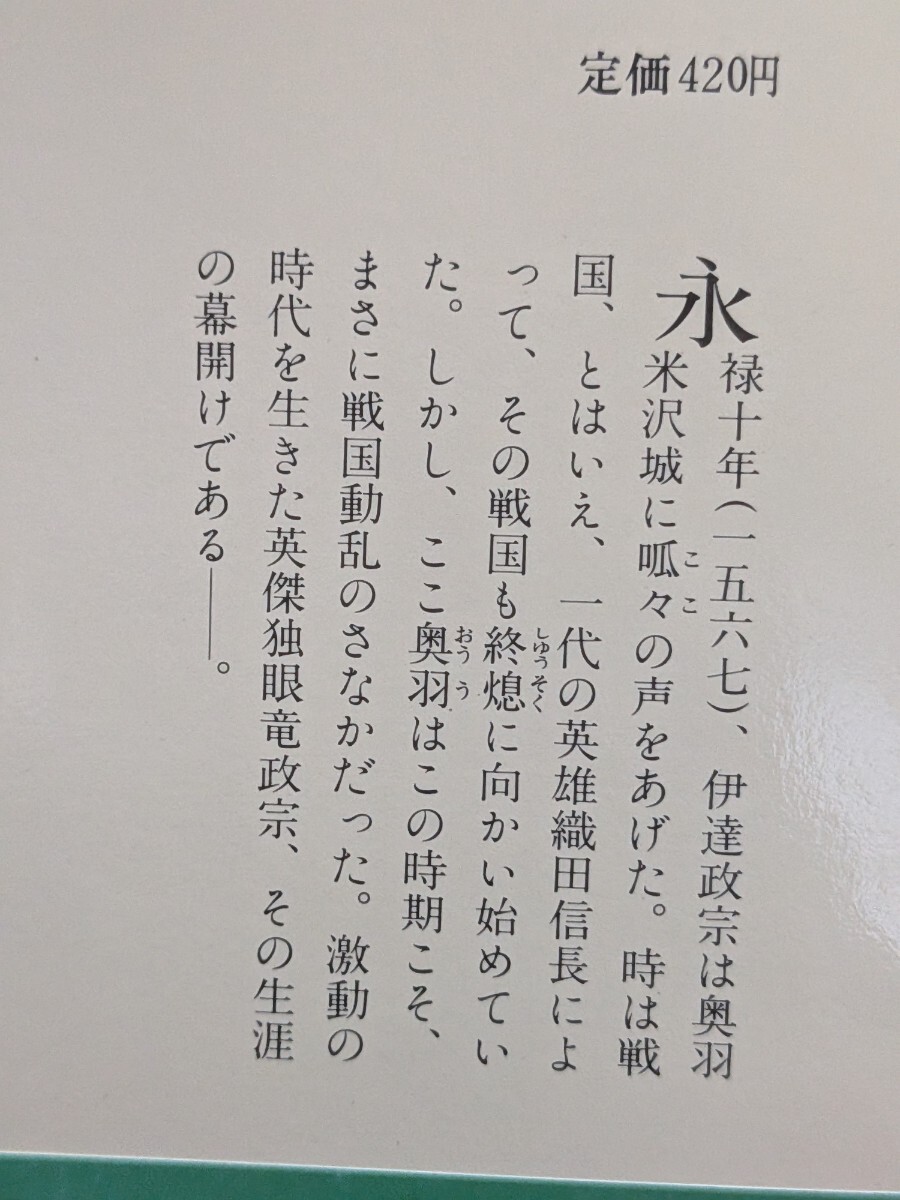 定価420円
永禄十年(一五六七)、伊達政宗は奥羽
米沢城に呱々の声をあげた。時は戦
国、とはいえ、一代の英雄織田信長によ
って、その戦国も終熄に向かい始めてい
た。しかし、ここ奥羽はこの時期こそ、
まさに戦国動乱のさなかだった。激動の
時代を生きた英傑独眼竜政宗、その生涯
の幕開けである――。
ここ
しゅうそく
おうう